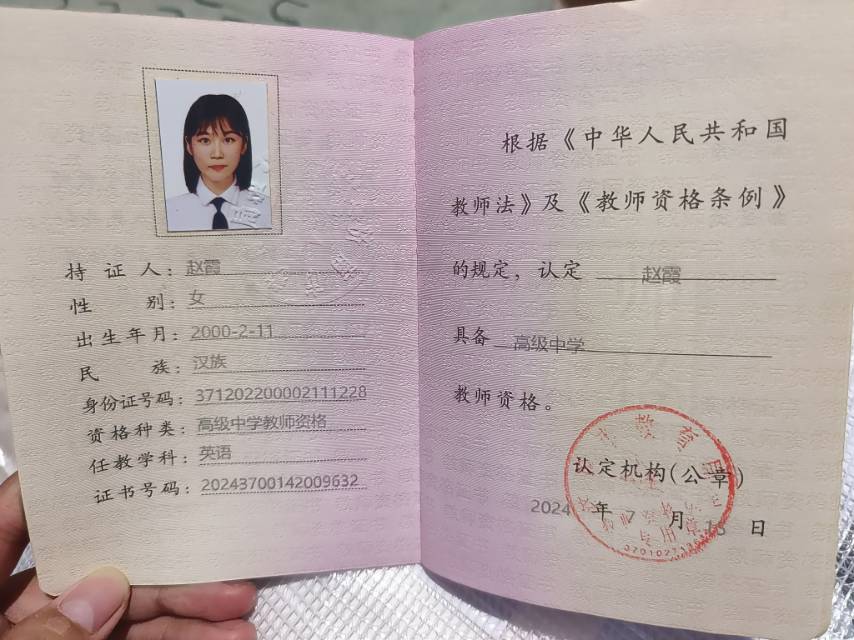 持证人：赵霞
性别：女
出生年月：2000-2-11
民族：汉族
身份证号码：371202200002111228
资格种类：高级中学教师资格
任教学科：英语
证书号码：20243700142009632
根据《中华人民共和国
教师法》及《教师资格条例》
的规定，认定 赵霞
具备 高级中学
教师资格。
认定机构(公章)
2024 年 7 月 日